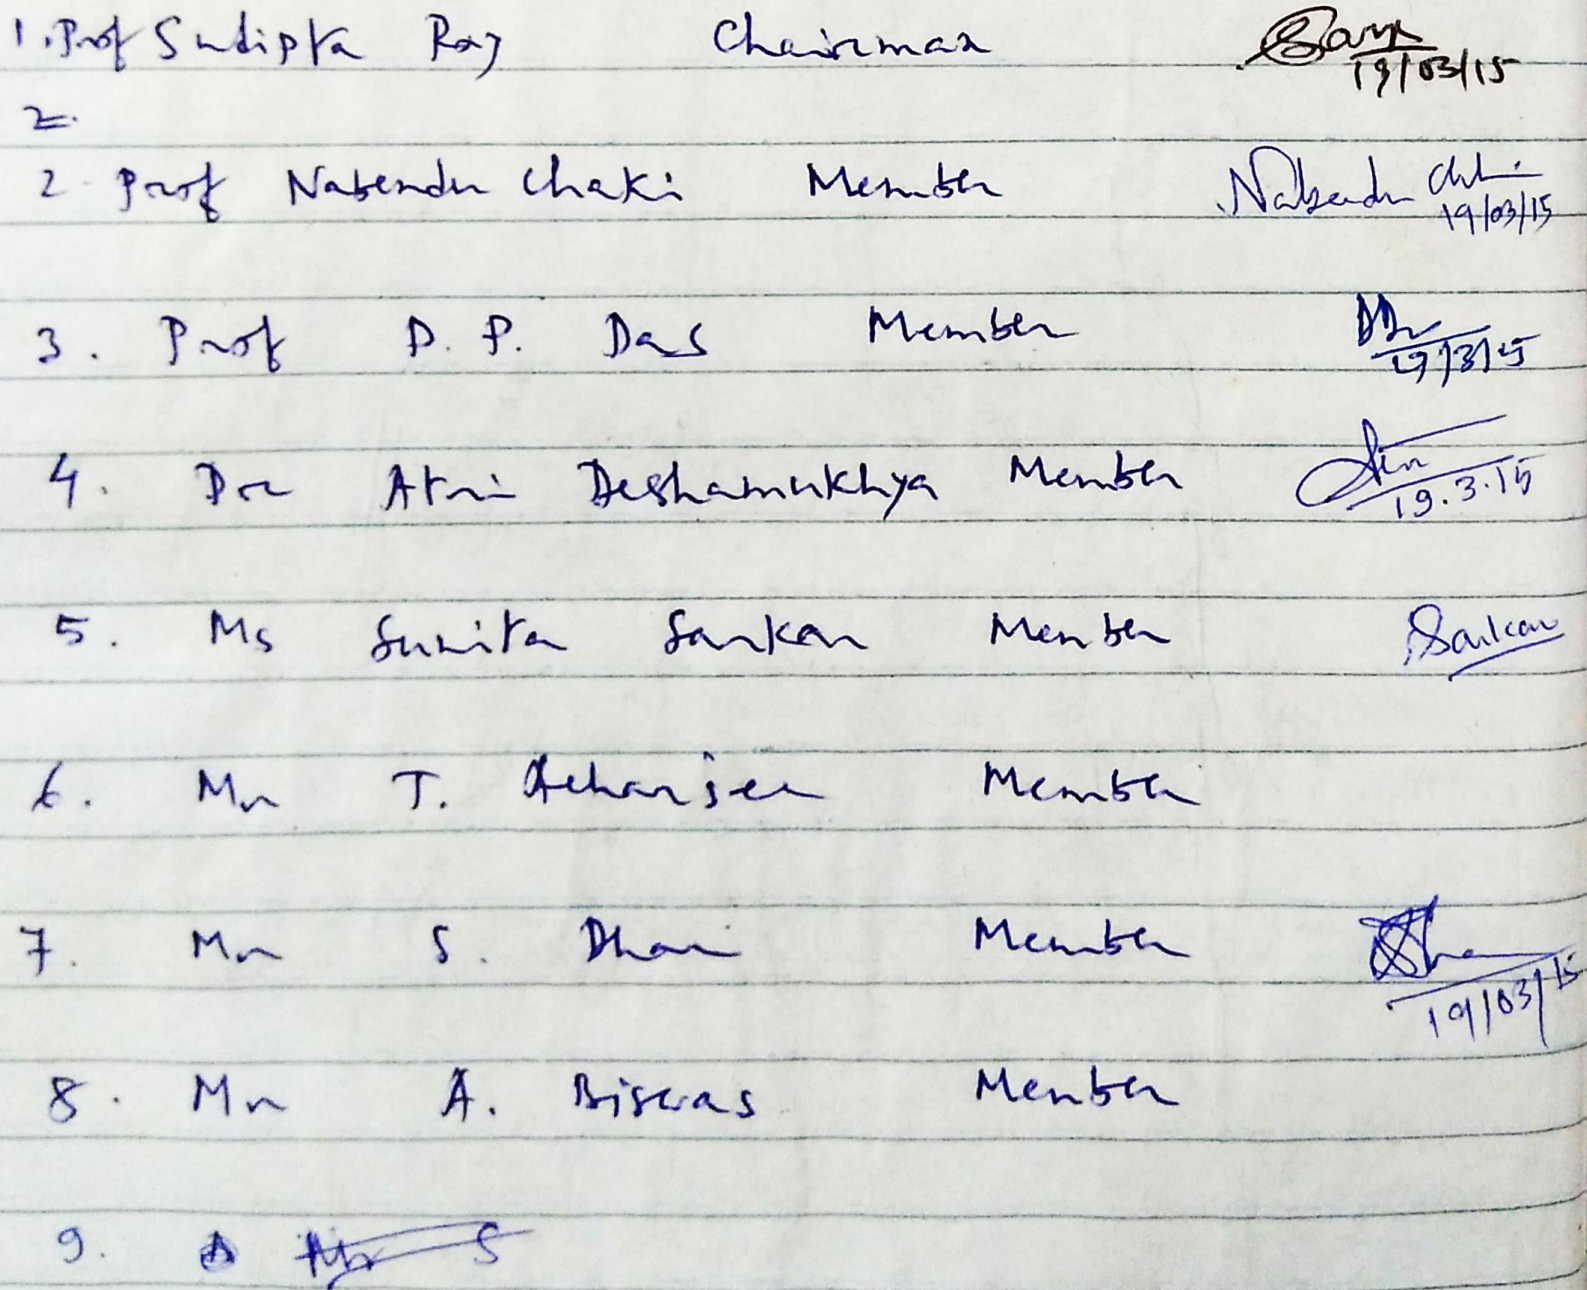 1. Prof Sudipta Roy Chairman 19/03/15
2.
2. Prof Nabendu Chaki Member Nabendu Chaki 19/03/15
3. Prof D. P. Das Member 19/3/15
4. Dr Atri Deshamukhya Member 19.3.15
5. Ms Sunita Sarkar Member Sarkar
6. Mr T. Acharjee Member
7. Mr S. Dhar Member 19/03/15
8. Mr A. Biswas Member
9.